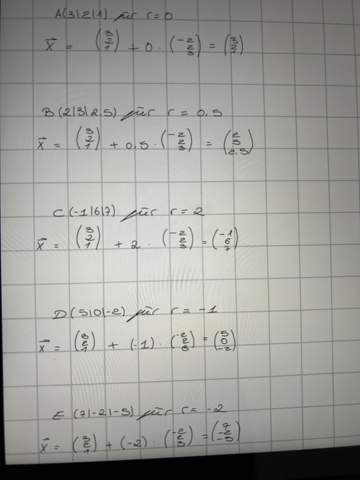 A(3|2|1) für r=0
x⃗ = (3 2 1) + 0 · (-2 2 3) = (3 2 1)
B(2|3|2,5) für r=0,5
x⃗ = (3 2 1) + 0,5 · (-2 2 3) = (2 3 2,5)
C(-1|6|7) für r=2
x⃗ = (3 2 1) + 2 · (-2 2 3) = (-1 6 7)
D(5|0|-2) für r=-1
x⃗ = (3 2 1) + (-1) · (-2 2 3) = (5 0 -2)
E(7|-2|-5) für r=-2
x⃗ = (3 2 1) + (-2) · (-2 2 3) = (7 -2 -5)